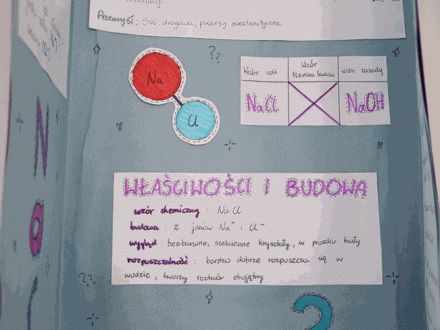 Przemysł: Sól drogowa, procesy elektrolityczne.
??
Na
Cl
Wzór soli
Wzór tlenku kwasu
wzór zasady
NaCl
NaOH
WŁAŚCIWOŚCI I BUDOWA
wzór chemiczny: NaCl
budowa: z jonów Na⁺ i Cl⁻
wygląd: bezbarwne, sześcienne kryształy, w proszku biały
rozpuszczalność: bardzo dobrze rozpuszcza się w
wodzie, tworzy roztwór obojętny
??
N
a
?